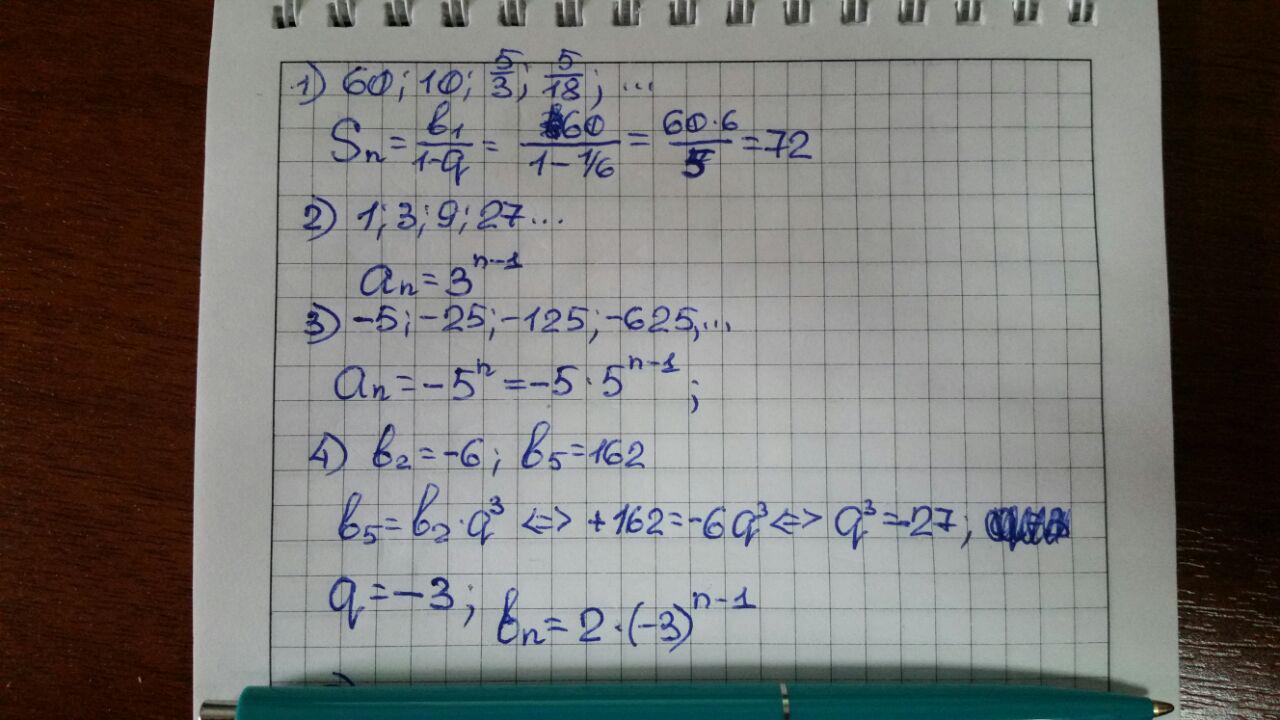 1) 60; 10; 5/3; 5/18; ...
Sn = b1/(1-q) = 60/(1-1/6) = 60·6/5 = 72
2) 1; 3; 9; 27...
an = 3^(n-1)
3) -5; -25; -125; -625, ...
an = -5^n = -5·5^(n-1);
4) b2 = -6; b5 = 162
b5 = b2·q^3 <=> +162 = -6q^3 <=> q^3 = -27;
q = -3; bn = 2·(-3)^(n-1)